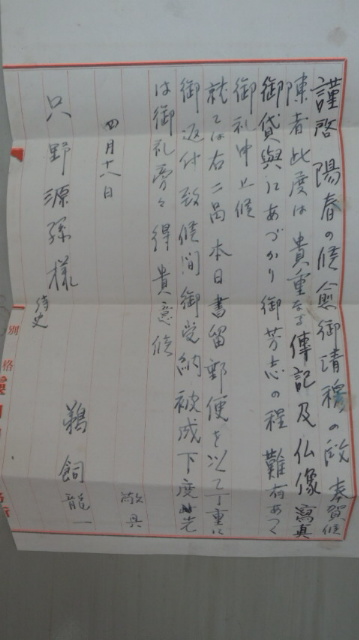 謹啓 陽春の候愈御清穆の段 奉賀候
陳者此度は貴重なる傳記及仏像寫真
御貸與にあづかり御芳志の程 難有あつく
御礼申上候
就ては右二品本日書留郵便を以て丁重に
御返付致候間御受納被成下度先
は御礼旁々得貴意候
敬具
四月十八日
鵜飼龍一
只野源孫様
侍史
別格